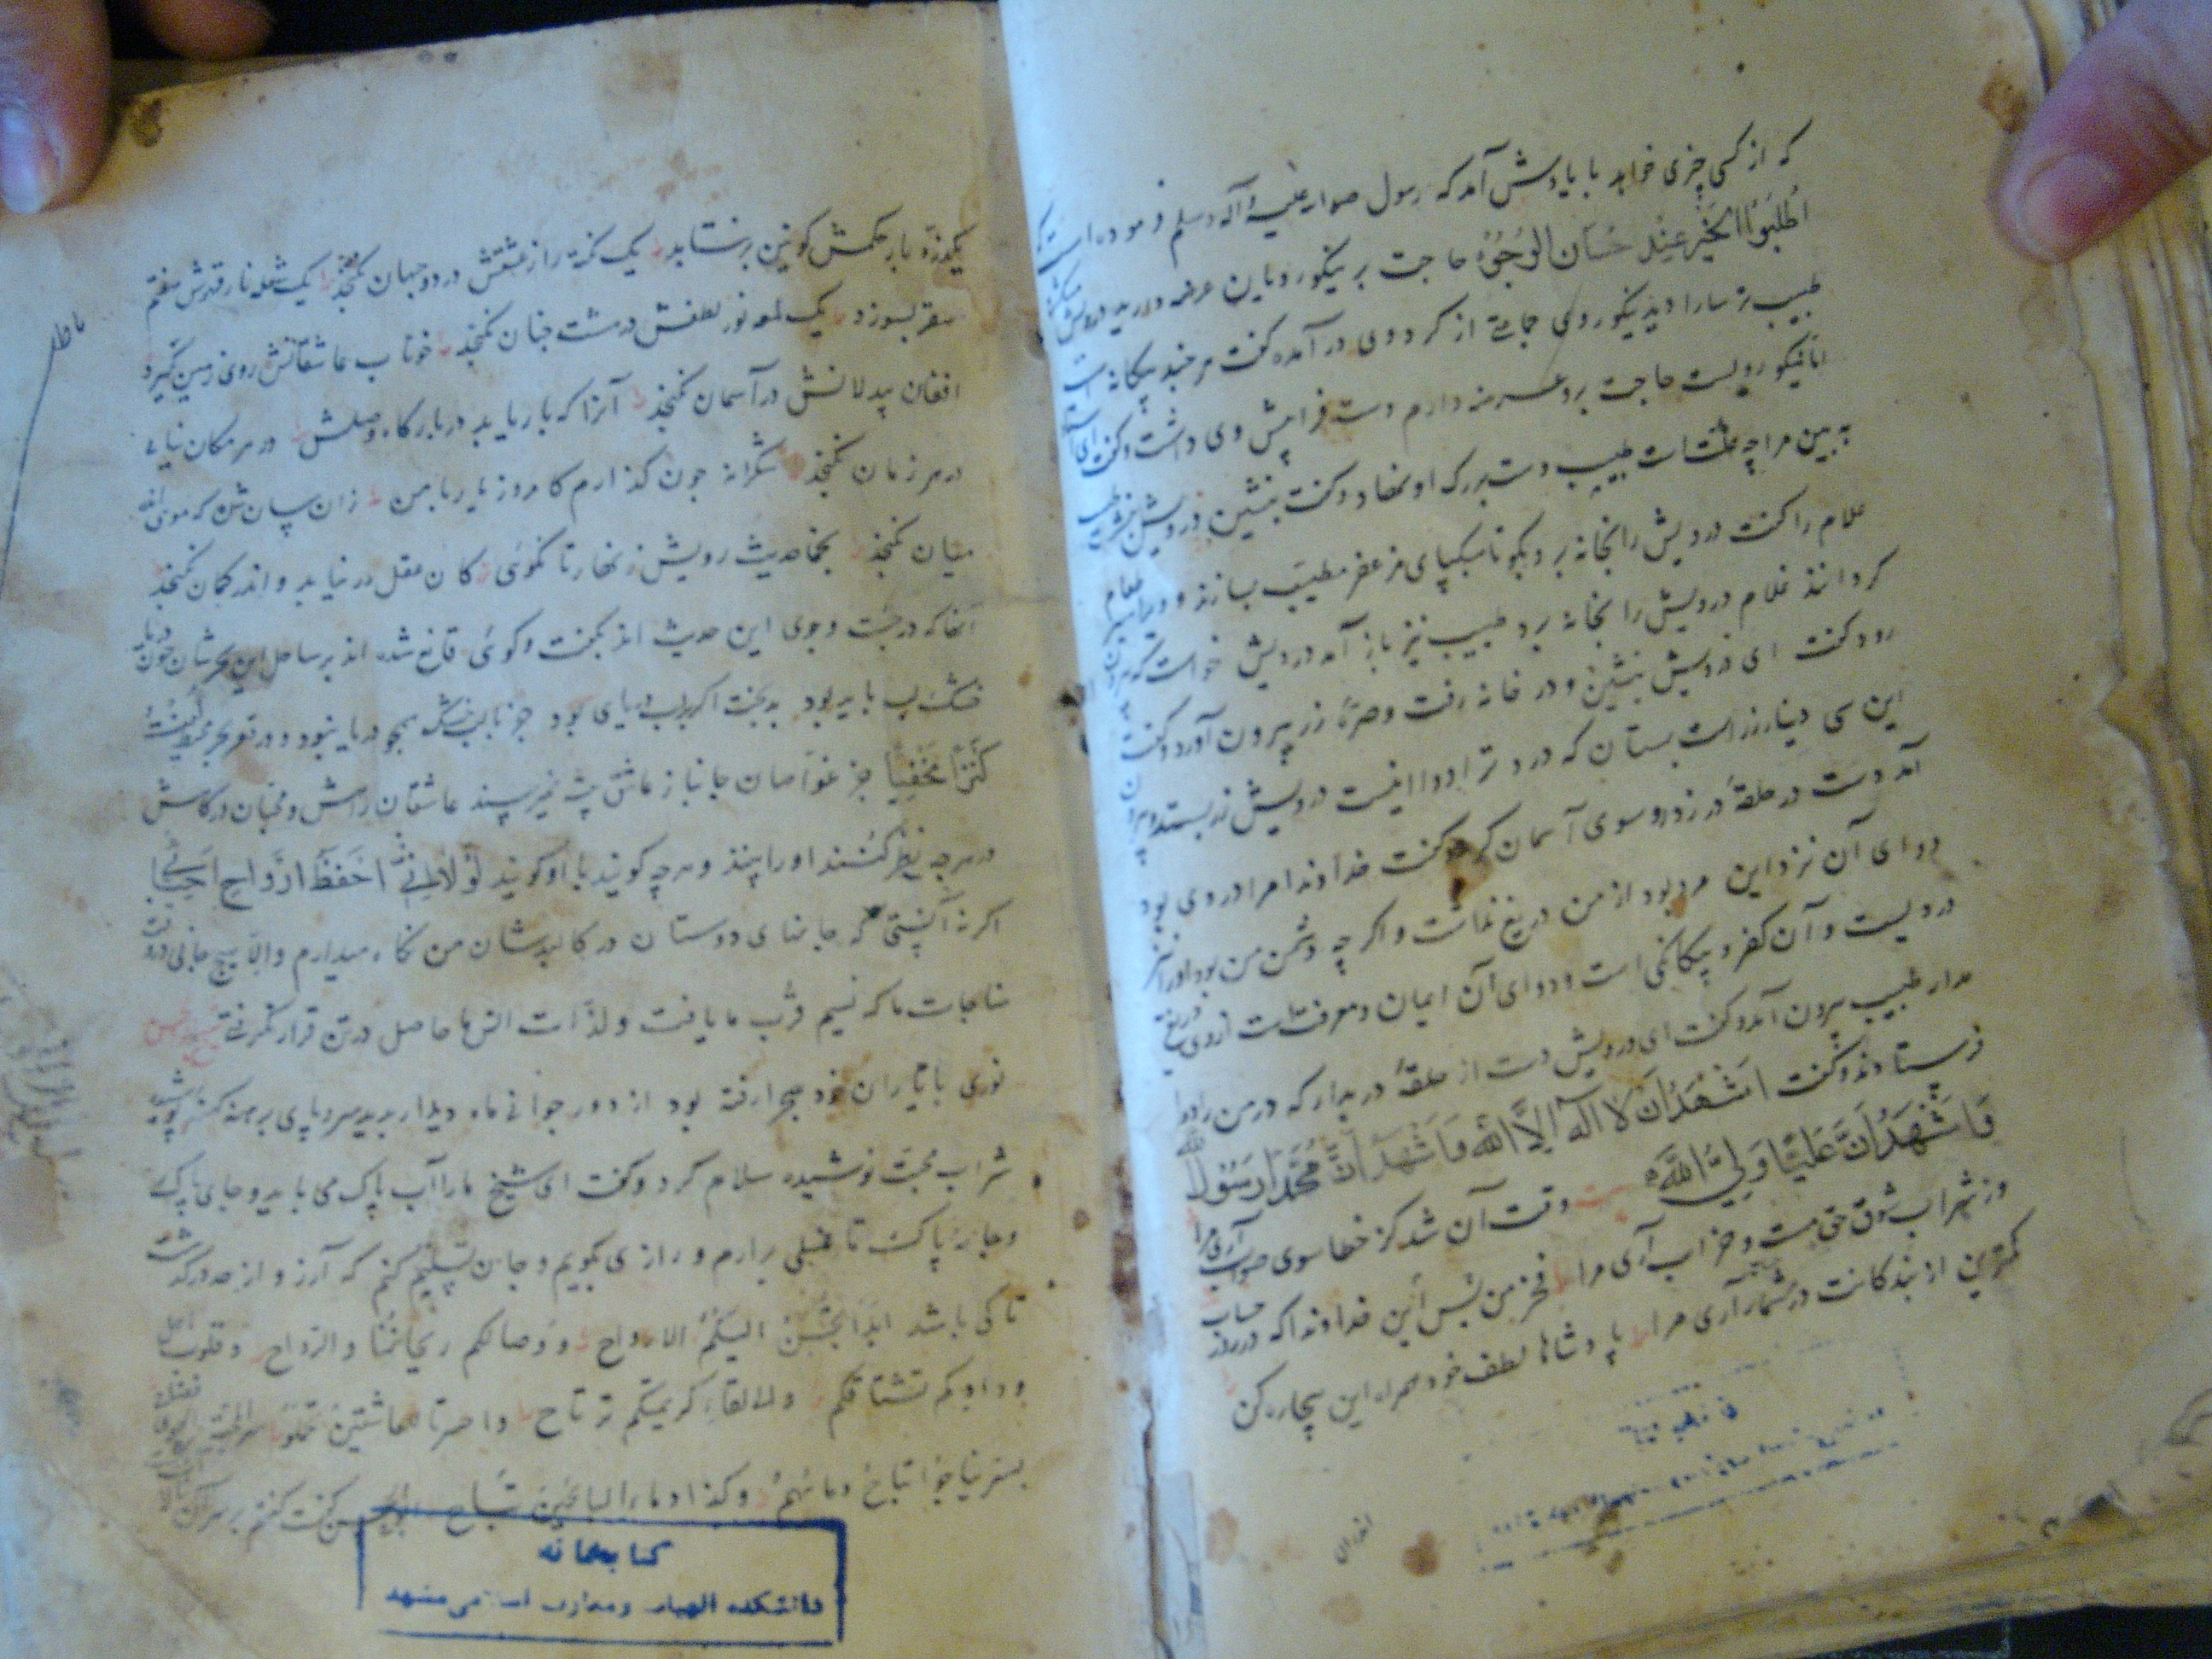 که از کسی چیزی خواهد با یادش آمد که رسول صلوات علیه و آله وسلم فرموده است که
اُطْلُبُوا الْخَیْرَ عِنْدَ حِسَانِ الْوُجُوْهِ حاجت بر نیکورویان عرضه دارید درویش
طبیب ترسا را دید نیکوروی جماعتی از کرد وی در آمده گفت هر چند بیکانه است
اما نیکورویست حاجت برو عرضه دارم دست فرا پیش وی داشت و گفت ای استاد
به بین مرا چه علتست طبیب دست بر رک او نهاد و گفت بنشین درویش بنشست طبیب
غلام را گفت درویش را بخانه بر و بگو تا سکبای مزعفر مطیب بسازند و طعام
کردانند غلام درویش را بخانه برد طبیب نیز باز آمد درویش خواست که بیرون
رود گفت ای درویش بنشین و در خانه رفت و صرهٔ زر بیرون آورد و گفت
این سی دینار زرست بستان که درد ترا دوا اینست درویش زر بستد و بیرون
آمد دست در حلقهٔ در زد و سوی آسمان کرد و گفت خداوندا مرا دردی بود
دوای آن نزد این مرد بود از من دریغ نداشت و اکر چه دشمن من بود او را نیز
دردیست و آن کفر و بیکانکی است و دوای آن ایمان و معرفتست از وی دریغ
مدار طبیب بیرون آمد و گفت ای درویش دست از حلقهٔ در بدار که درد من را دوا
فرستادند و گفت اَشْهَدُ اَنْ لَا اِلَهَ اِلَّا اللّٰهُ وَاَشْهَدُ اَنَّ مُحَمَّدًا رَسُولُ اللّٰه
وَاَشْهَدُ اَنَّ عَلِیًّا وَلِیُّ اللّٰهِ بیت وقت آن شد کز خطا سوی صواب آری مرا
وز شراب شوق حق مست و خراب آری مرا فخر من بس این خداوندا که در روز حساب
کمترین از بندکانت در شمار آری مرا پادشاها لطف خود همراه این بیچاره کن
یکذره بار حکمش کونین برنتابد یک نکته راز عشقش در دو جهان نکنجد یک شعله نار قهرش هفتم
سقر بسوزد یک لمعه نور لطفش در هشت جنان نکنجد خوناب عاشقانش روی زمین بگیرد
افغان بیدلانش در آسمان نکنجد آنرا که بار باید در بارکاه وصلش در هر مکان نیاید
در هر زمان نکنجد شکرانه جون کذارم کامروز یار با من زان سان شدست که موئی اندر
میان نکنجد بخدا حدیث رویش زنهار تا نکوئی کان در عقل در نیاید و اندر کمان نکنجد
آنها که در جست و جوی این حدیث اند بکفت و کوئی قانع شده اند بر ساحل این بحرشان جون دریا
خشک لب باید بود بدبخت اکر بر لب دریای بود جز با لب خشک همجو دریا نبود و در قعر بحر محیط
کَنْزًا مَخْفِیًّا جز غواصان جانباز عاشق پیشه غیر پسند عاشقان راهش و محبان درکاهش
در هرجه نظر کنند او را بینند و هرجه کویند با او کویند لَوْلَا اَنِّی اَحْفَظُ اَرْوَاحَ اَحِبَّائِی
اکر نه آنستی که جانهای دوستان در کالبدشان من نکاه میدارم و الا هیچ جانی در وقت
مناجات ما که نسیم قرب ما یافت و لذات انس ما حاصل در تن قرار نکرفتی شیخ ابو الحسن
نوری با یاران خود بصحرا رفته بود از دور جوانی ماه دیدار بدید سر و پای برهنه کهنه پوشیده
شراب محبت نوشیده سلام کرد و گفت ای شیخ ما را آب پاک می باید و جای پاک
و جامهٔ پاک تا غسلی برارم و رازی بگویم و جان تسلیم کنم که آرزو از حد درکذشت
تا کی باشد اَبَدًا تَحِنُّ اِلَیْکُمُ الارواح و وصالکم ریحانُنَا والراح و قلوب اهل
ودادکم تشتاقکم و الی لقاء کریمکم ترتاح واحسرتا للعاشقین تحملوا سر المحبة
بسرنا بوا تباح دمائهم و کذا دماء البائحین تباح ابو الحسن گفت گفتم
کتابخانه
دانشکده الهیات و معارف اسلامی مشهد